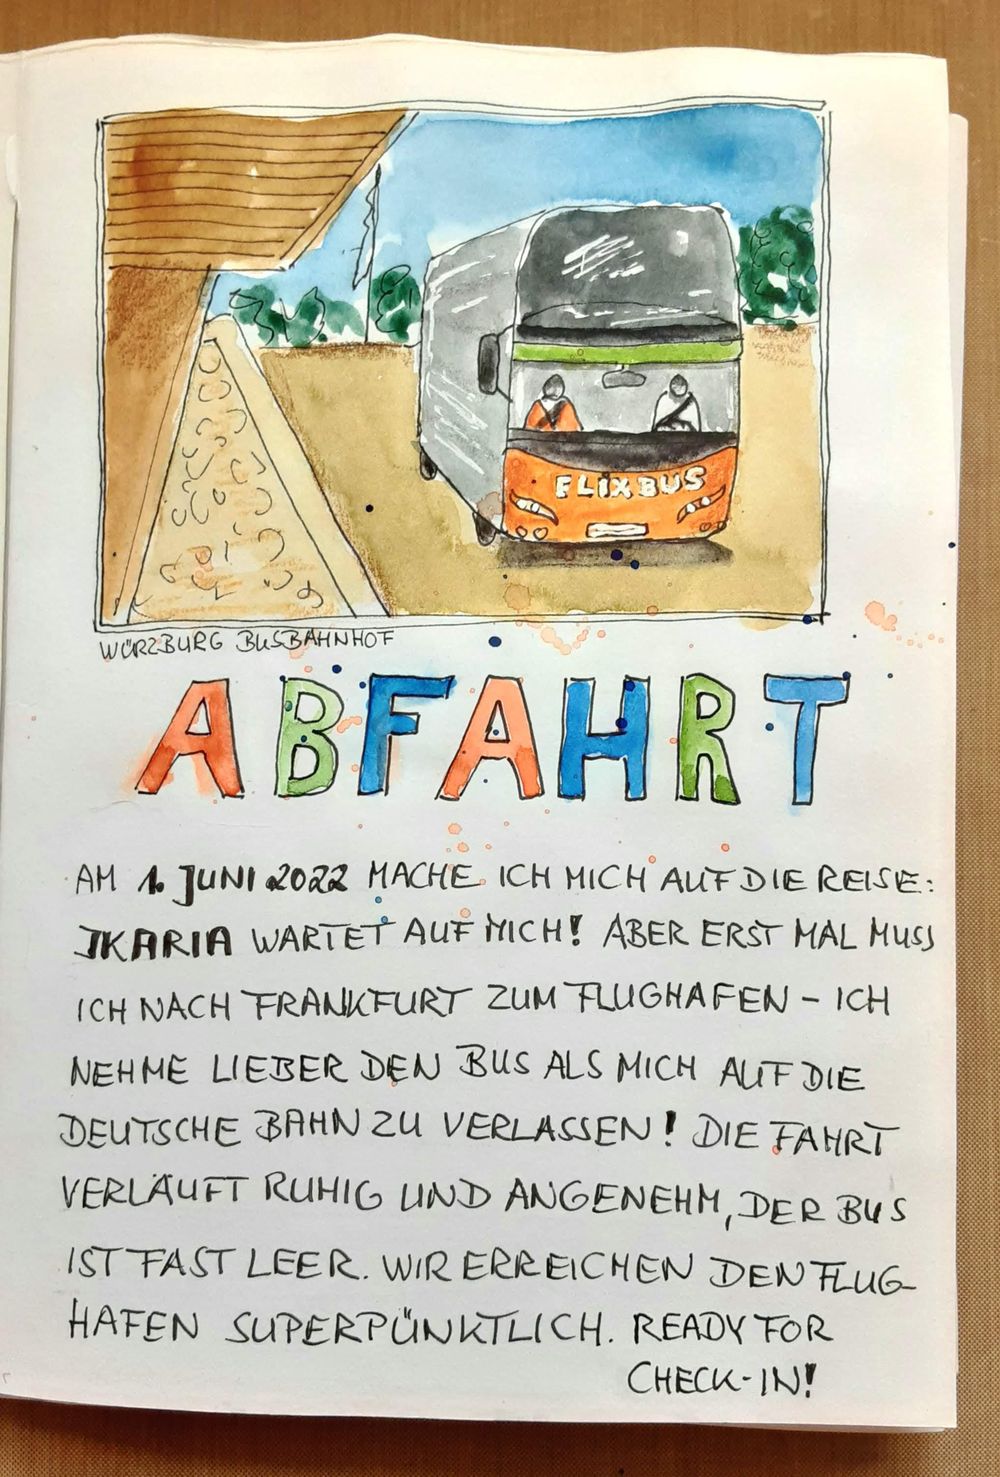 FLIXBUS
WÜRZBURG BUSBAHNHOF
ABFAHRT
AM 1. JUNI 2022 MACHE ICH MICH AUF DIE REISE:
IKARIA WARTET AUF MICH! ABER ERST MAL MUSS
ICH NACH FRANKFURT ZUM FLUGHAFEN – ICH
NEHME LIEBER DEN BUS ALS MICH AUF DIE
DEUTSCHE BAHN ZU VERLASSEN! DIE FAHRT
VERLÄUFT RUHIG UND ANGENEHM, DER BUS
IST FAST LEER. WIR ERREICHEN DEN FLUG-
HAFEN SUPERPÜNKTLICH. READY FOR
CHECK-IN!